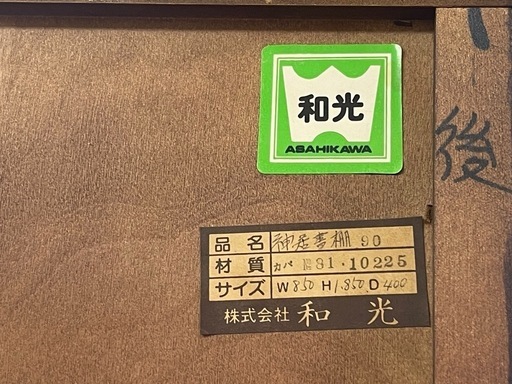 和光
ASAHIKAWA
後
品名 神居書棚 90
材質 カバ 81.10225
サイズ W850 H1.850 D400
株式会社 和光